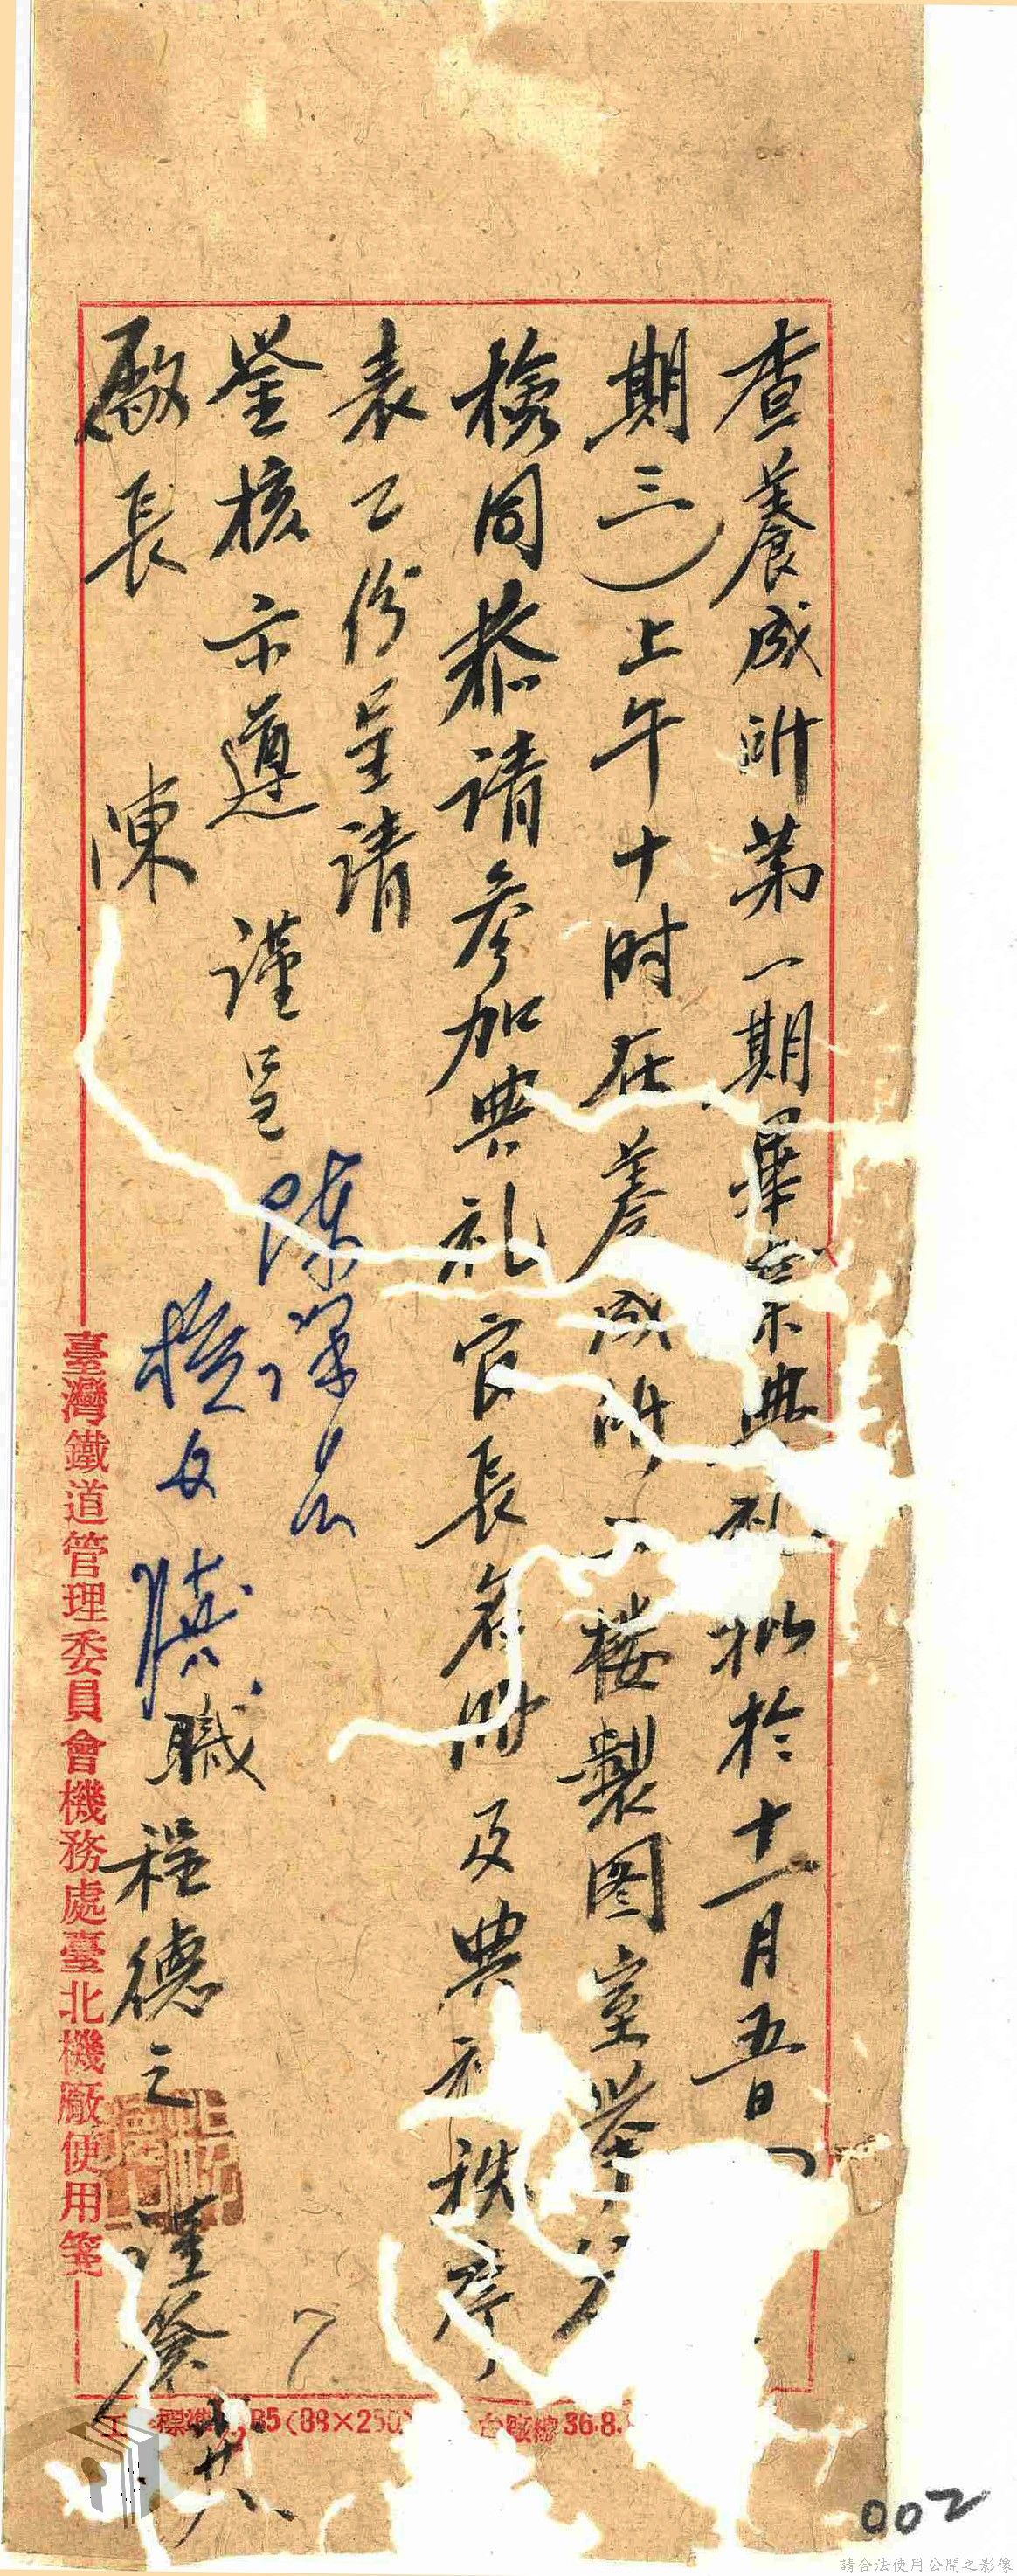 查養成所第一期畢業典礼拟於十一月五日(
期三)上午十时在養成所二楼製图室举
檢同恭请參加典礼官長名冊及典礼秩序
表乙份呈请
鉴核示遵 謹呈
廠長 陳
陳課長
職程德之謹簽
臺灣鐵道管理委員會機務處臺北機廠使用箋
B5(88×250) 台廠總36.8.
002
請合法使用公開之影像